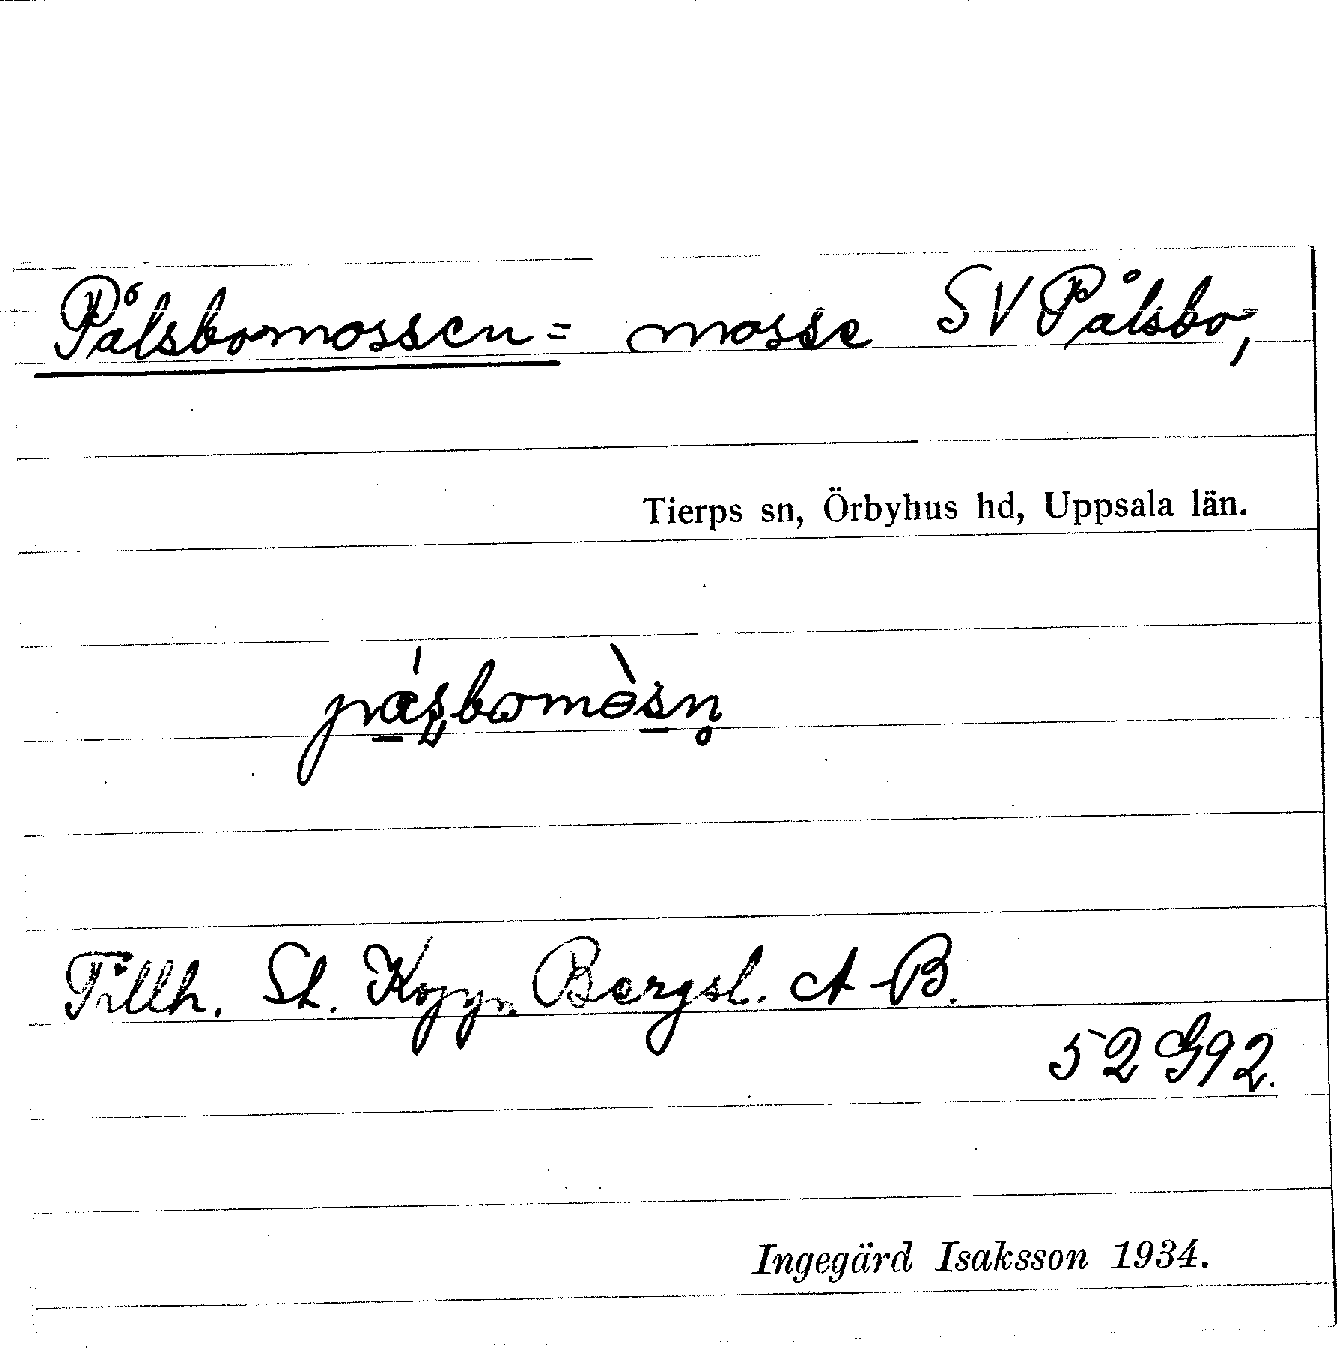 Pålsbomossen = mosse SV Pålsbo,
Tierps sn, Örbyhus hd, Uppsala län.
Tillh. St. Kopp. Bergsl. A-B.
52 G92.
Ingegärd Isaksson 1934.